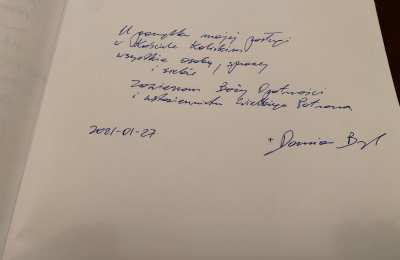 U początku mojej posługi
w Kościele Kaliskim
wszystkie osoby, sprawy
i siebie
Zawierzam Bożej Opatrzności
i wstawiennictwu Świętego Patrona
2021-01-27
+ Damian Bryl